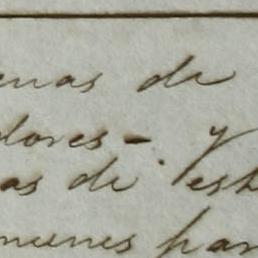 enas de
dores - y
as de est
munes par